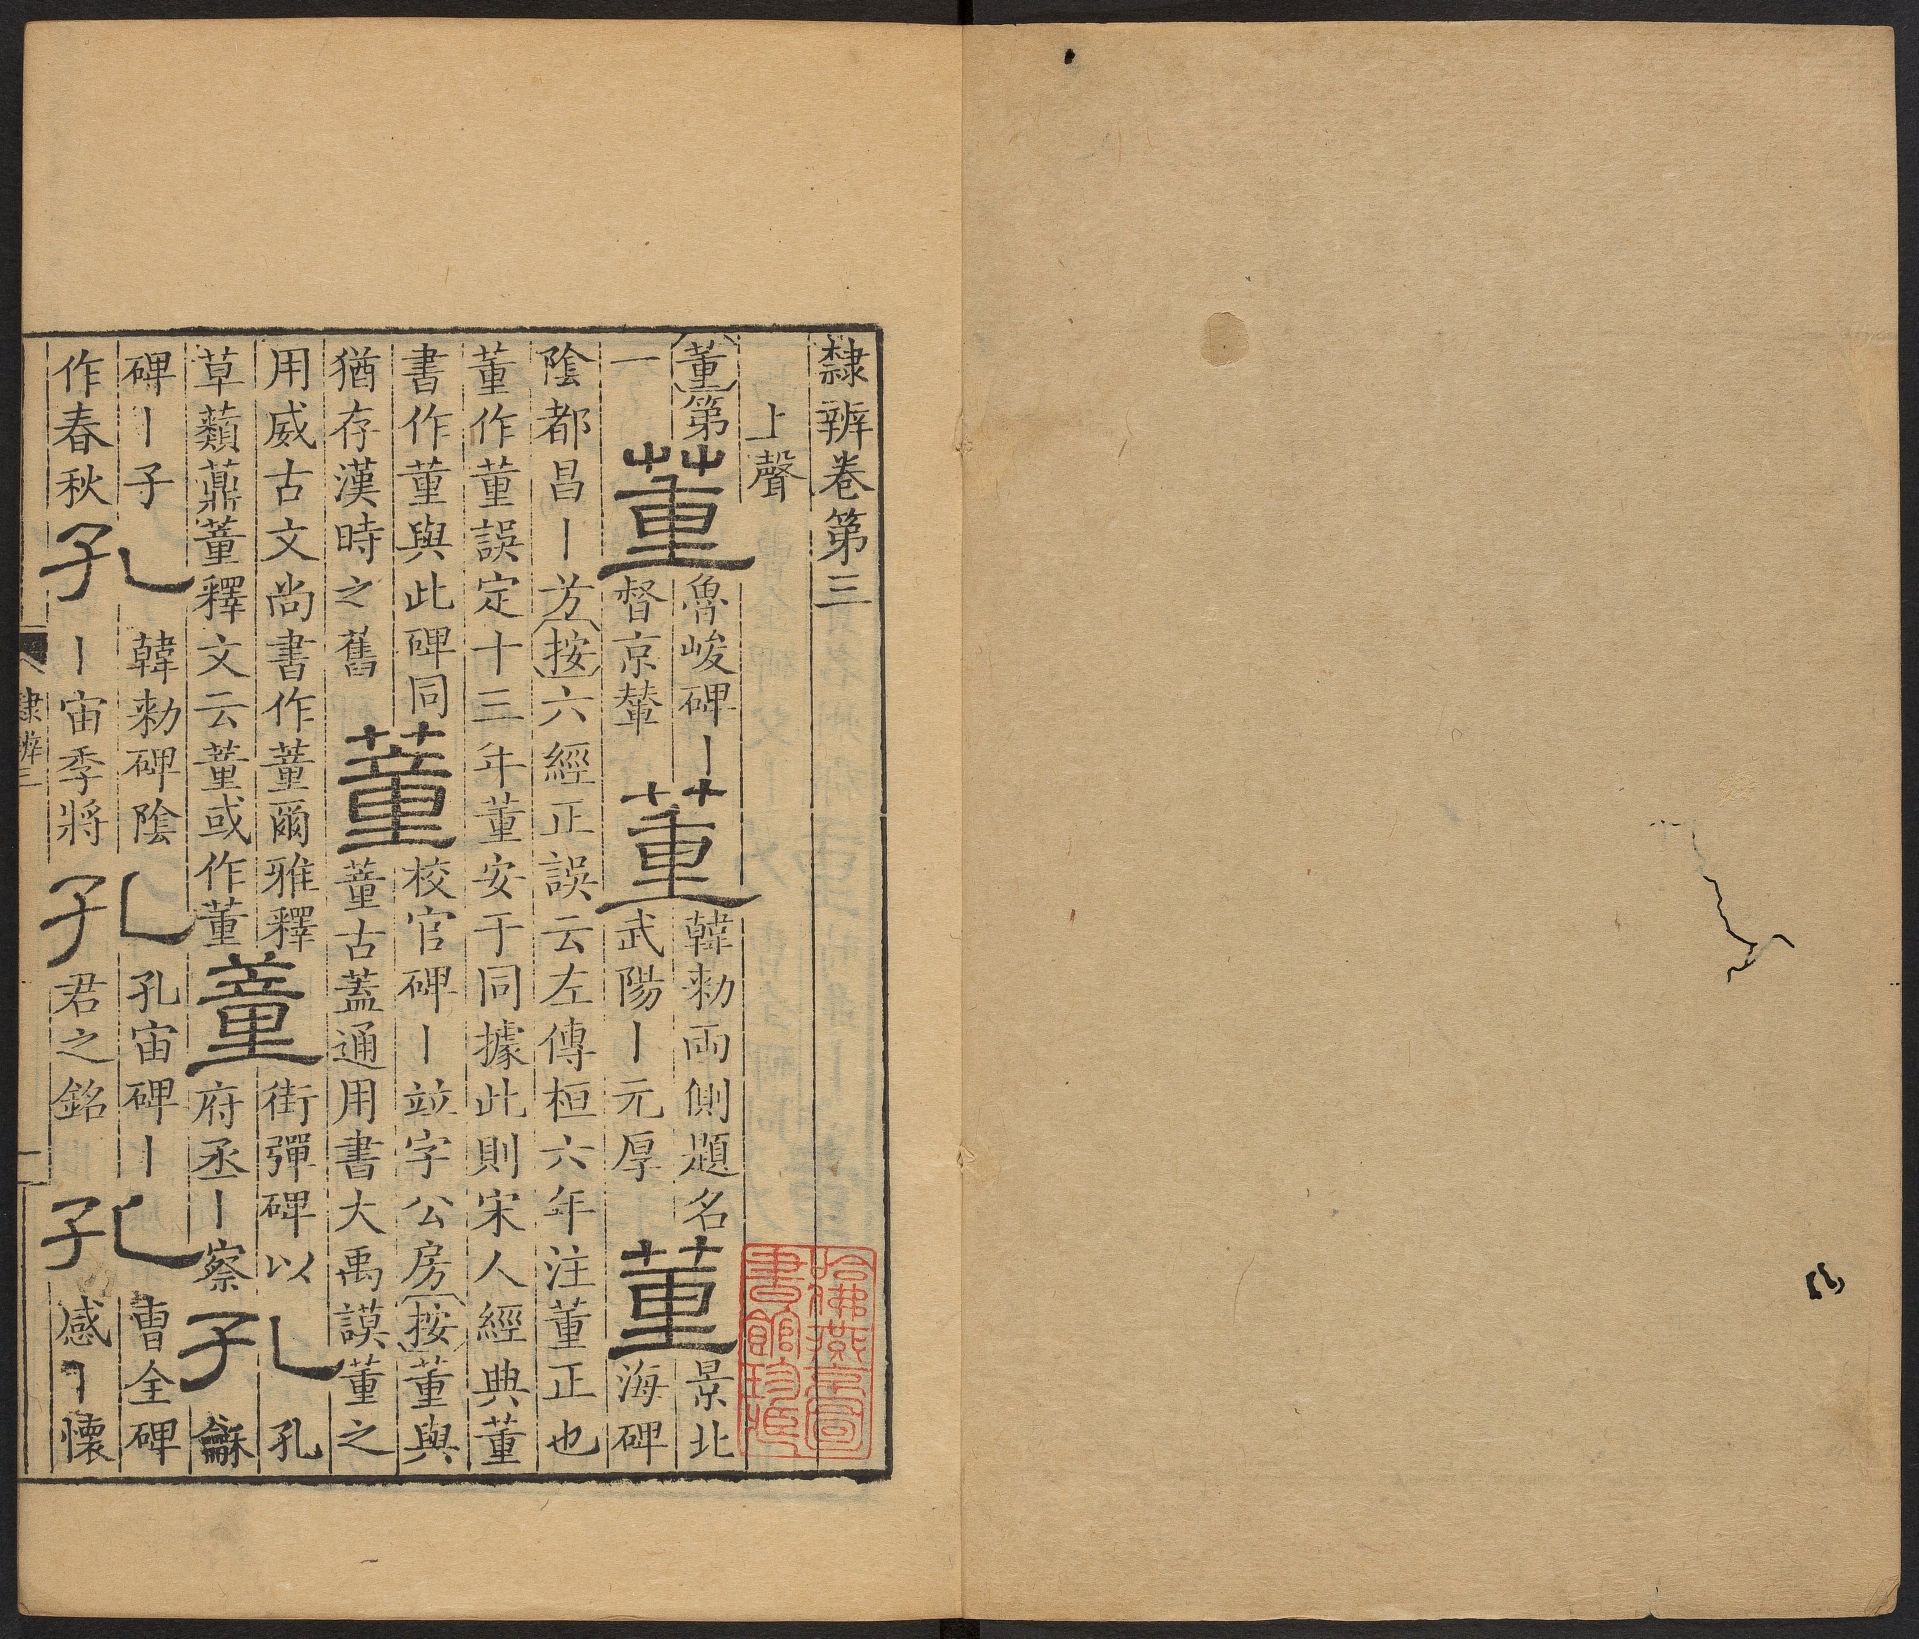 隸辨卷第三
上聲
董第
一
董
魯峻碑丨
督京輦
董
韓勑兩側題名
武陽丨元厚
董
景北
海碑
陰都昌丨芳按六經正誤云左傳桓六年注董正也
董作蕫誤定十三年董安于同據此則宋人經典董
書作董與此碑同
猶存漢時之舊
蕫
校官碑丨竝字公房按董與
蕫古蓋通用書大禹謨董之
用威古文尚書作蕫爾雅釋
草蘱薡蕫釋文云蕫或作董
蕫
街彈碑以
府丞丨察
孔
孔
龢
碑丨子
作春秋
孔
韓勑碑陰
丨宙季將
孔
孔宙碑丨
君之銘
孔
曹全碑
感丨懷
隸辨三
一
哈佛燕京圖書館珍藏